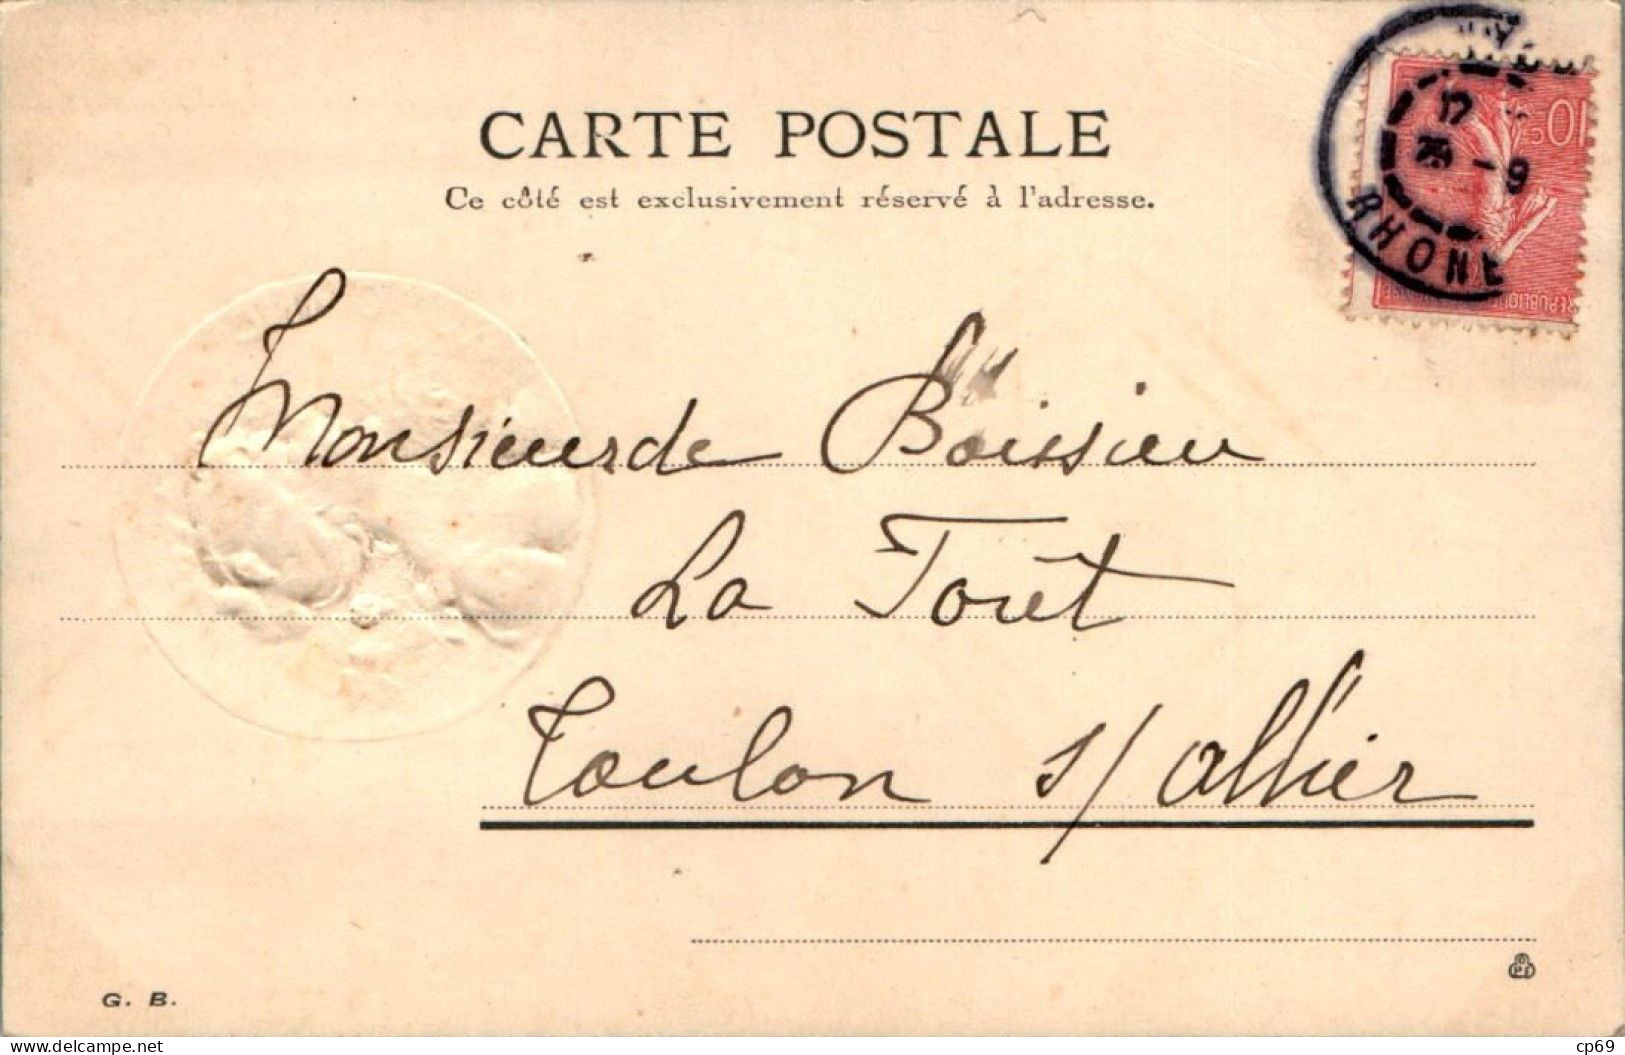 CARTE POSTALE
Ce côté est exclusivement réservé à l'adresse.
10
RHONE
Monsieur de Boissieu
La Forêt
Toulon s/ Allier
G. B.
www.delcampe.net
cp69